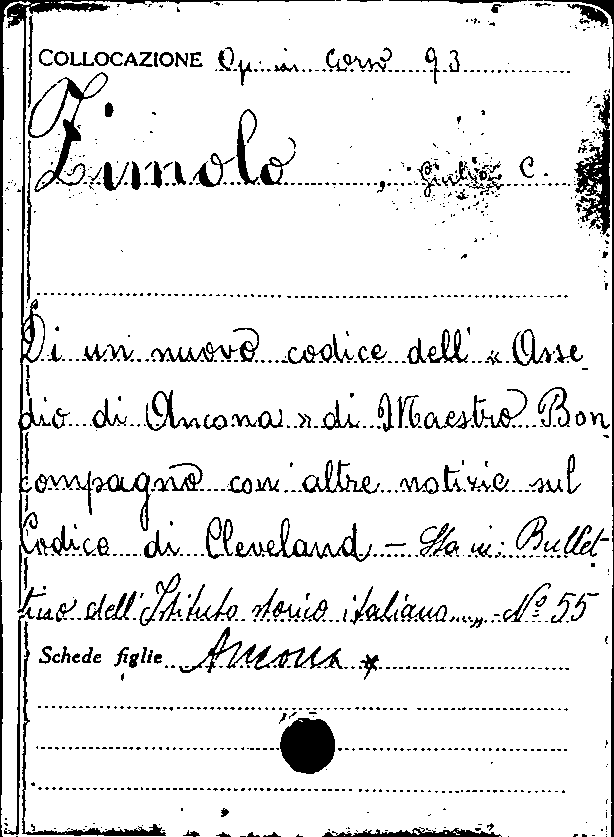 COLLOCAZIONE Op. in corso 93
Zimolo, Giulio C.
Di un nuovo codice dell' « Asse
dio di Ancona » di Maestro Bon
compagno con altre notizie sul
Codice di Cleveland – Sta in: Bullet-
tino dell'Istituto storico italiano...,, - Nº 55
Schede figlie Ancona *